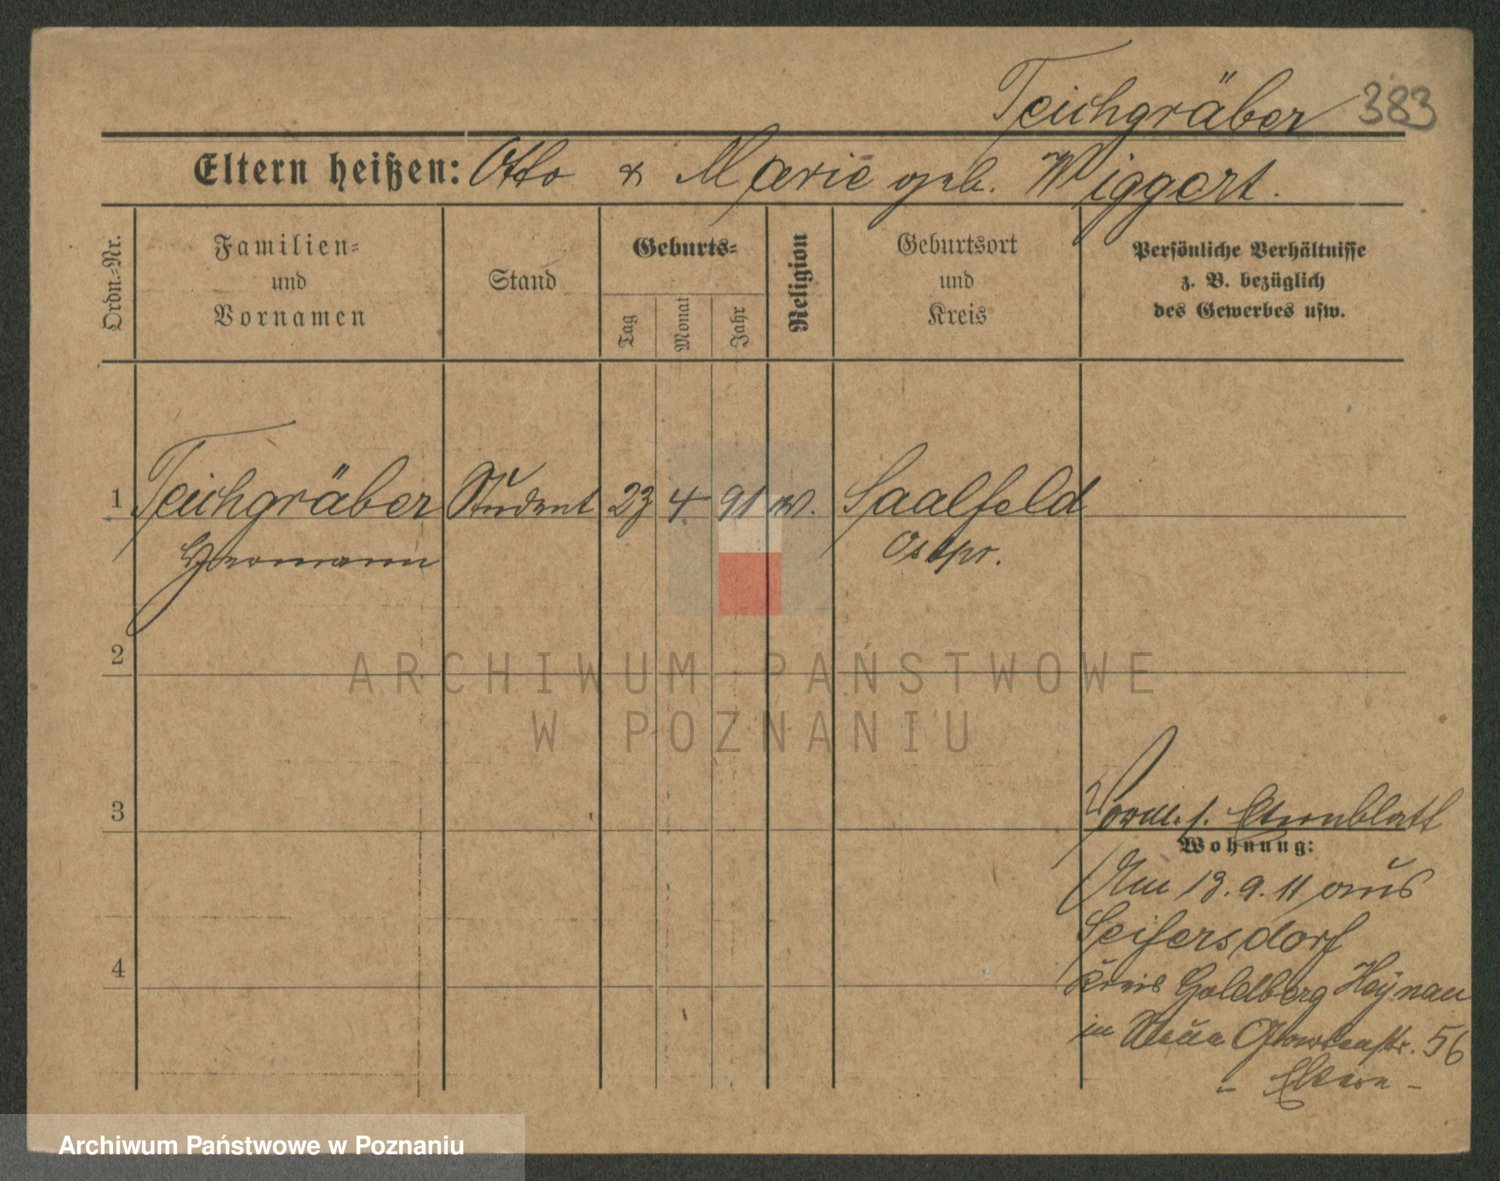 Teichgräber 383
Eltern heißen: Otto & Marie geb. Wiggert.
Ordn.-Nr.
Familien-
und
Vornamen
Stand
Geburts-
Tag
Monat
Jahr
Religion
Geburtsort
und
Kreis
Persönliche Verhältnisse
z. B. bezüglich
des Gewerbes usw.
1 Teichgräber Student 23 4. 91 Saalfeld
Hermann Ostpr.
2
ARCHIWUM PAŃSTWOWE
W POZNANIU
3
Vorm. s. Elternblatt
Wohnung:
Am 13. 9. 11 aus
Seifersdorf
Kreis Goldberg Haynau
in Neue 56
- Eltern -
4
Archiwum Państwowe w Poznaniu